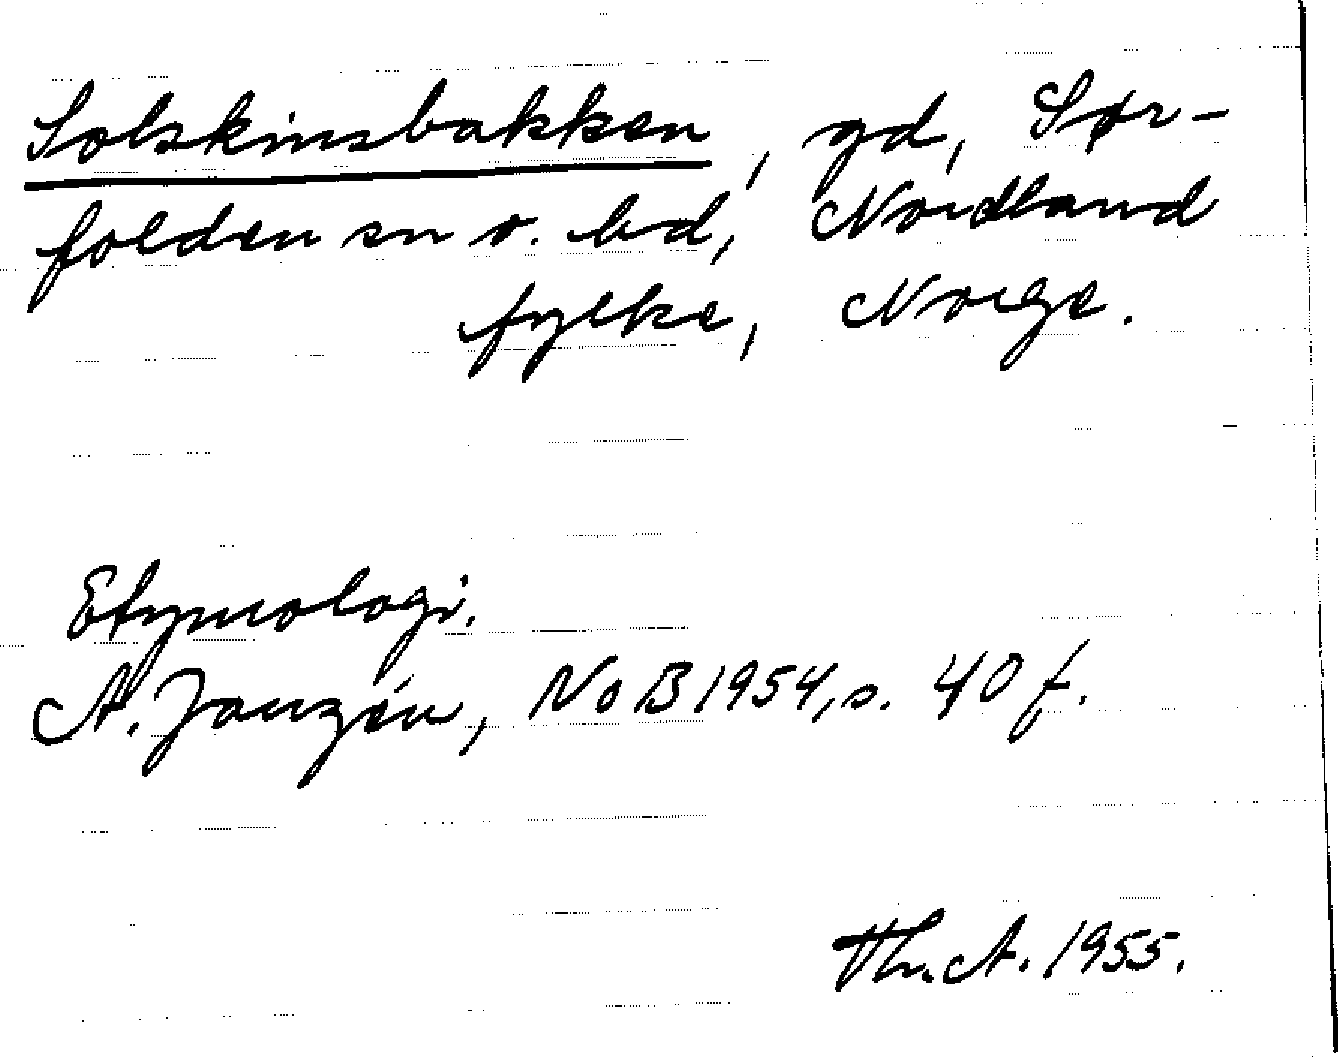 Solskinsbakken, gd, Sør-
folden sn o. hd, Nordland
fylke, Norge.
Etymologi.
A. Janzén, NoB 1954, s. 40 f.
Th. A. 1955.